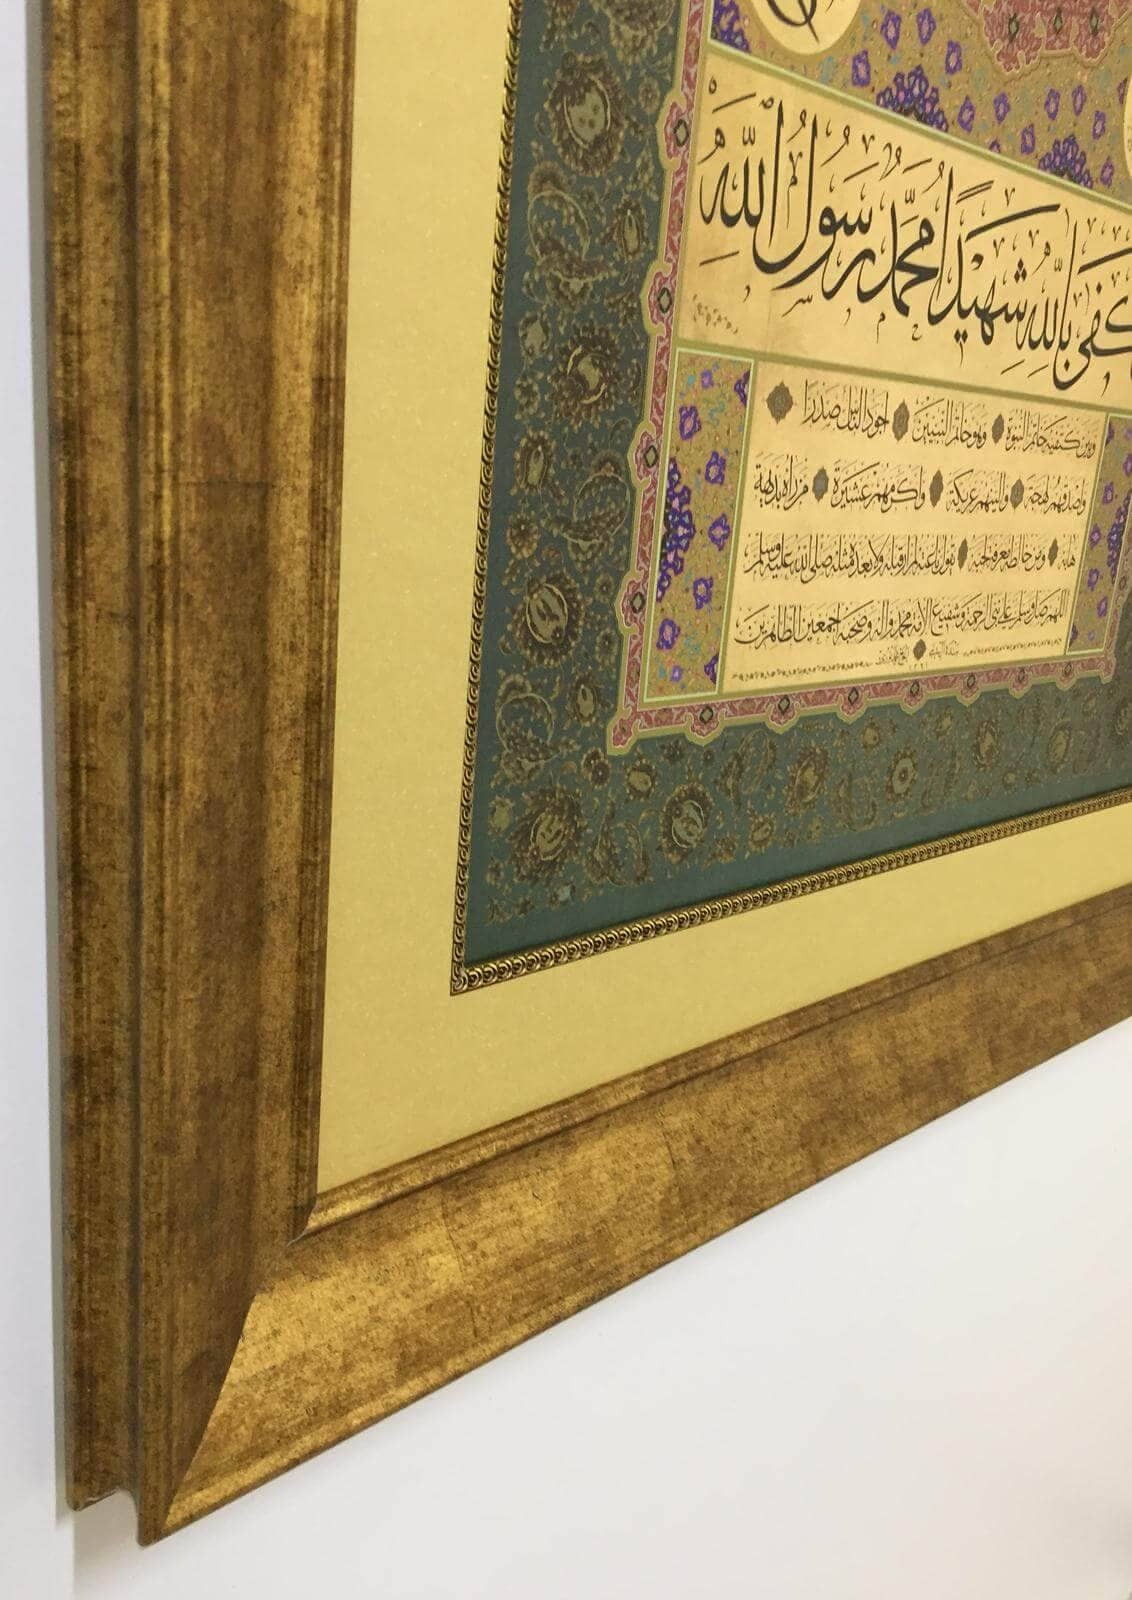 كفى بالله شهيدا محمد رسول الله
وبين كتفيه خاتم النبوة وهو خاتم النبيين أجود الناس صدرا
وأصدقهم لهجة وألينهم عريكة وأكرمهم عشيرة من رآه بديهة
هابه ومن خالطه معرفة أحبه يقول ناعته لم أر قبله ولا بعده مثله صلى الله عليه وسلم
اللهم صل وسلم على نبي الرحمة وشفيع الأمة محمد وآله وصحبه أجمعين الطاهرين